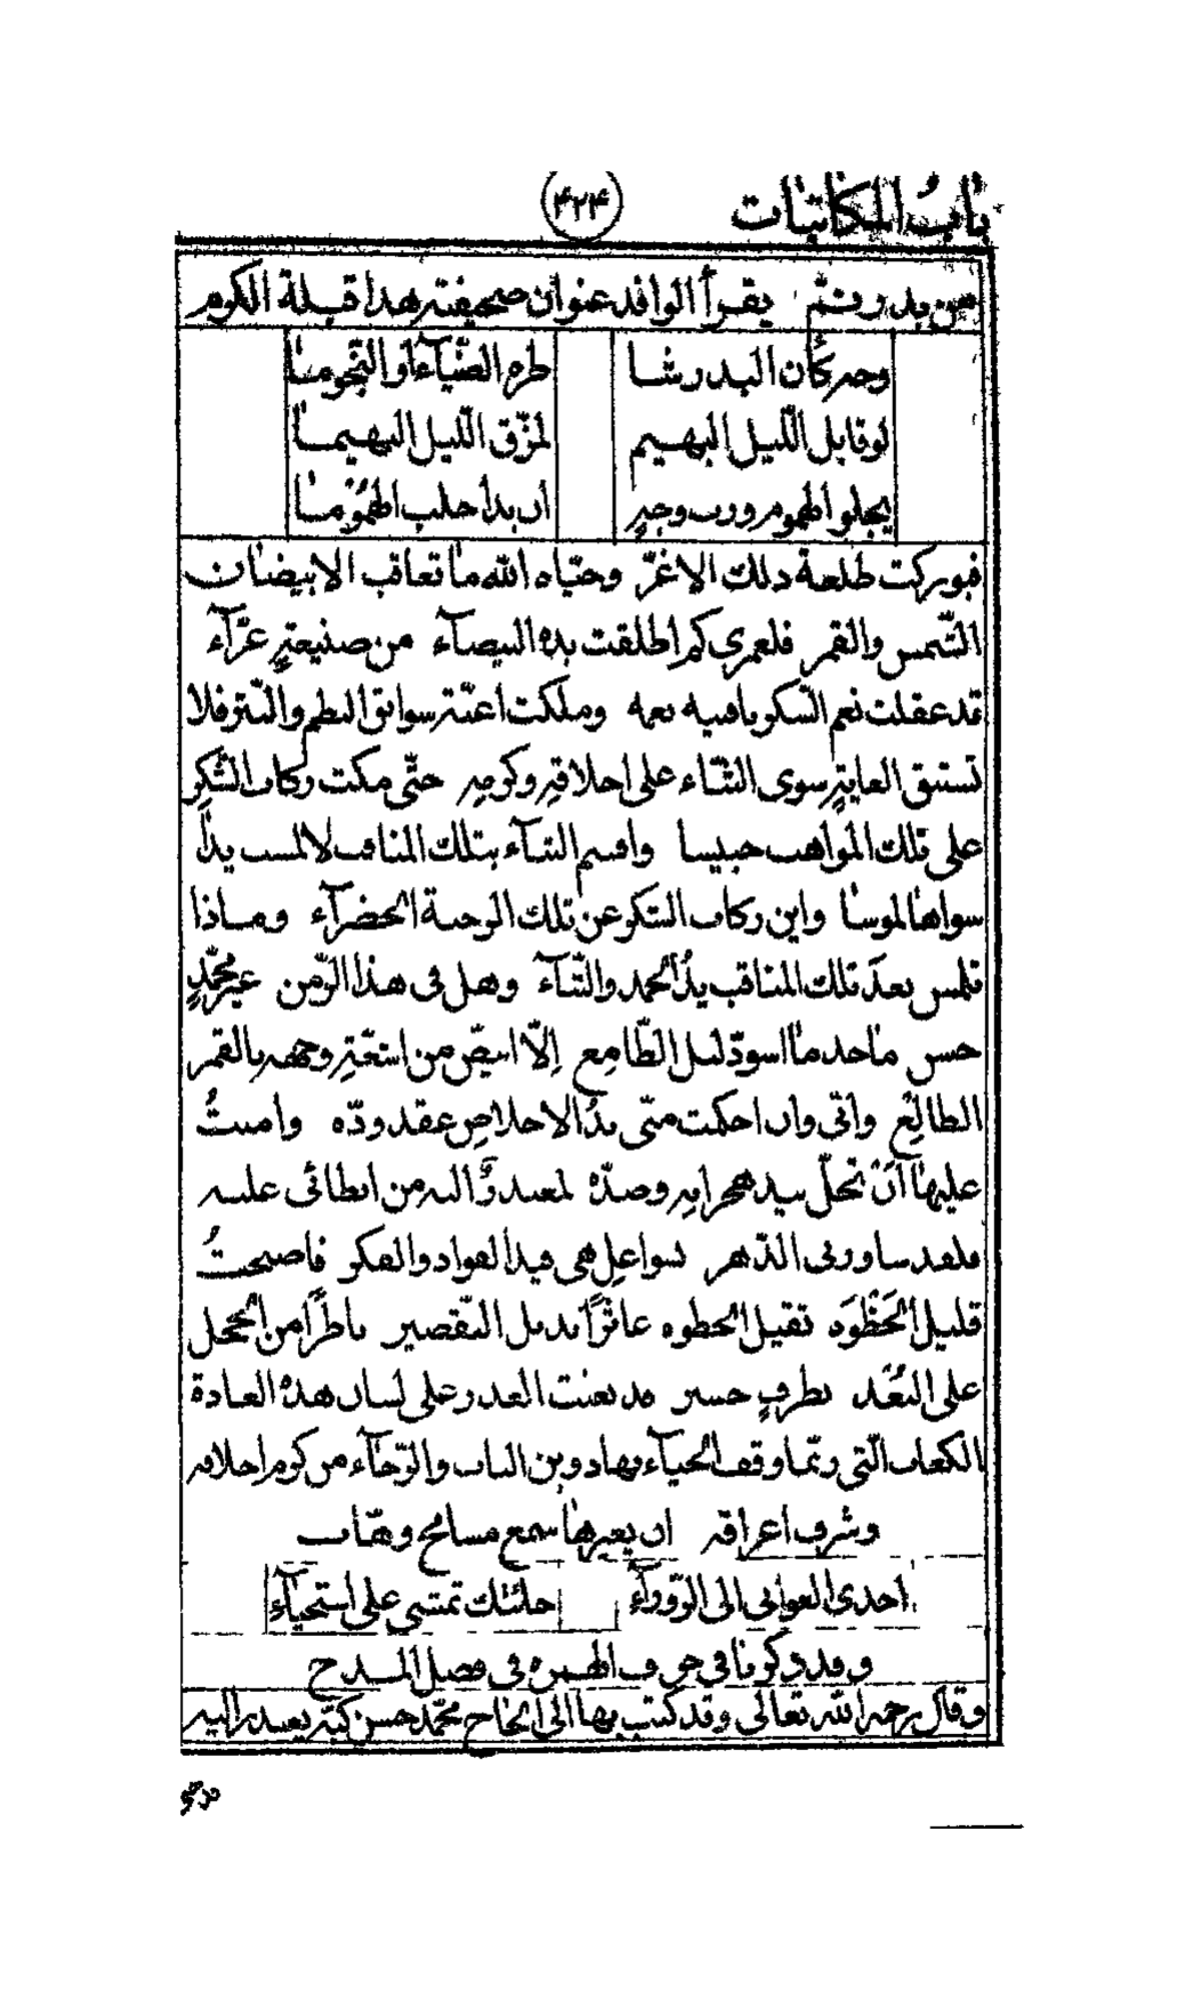 باب المكاتبات
۴۲۴
من بدر فتم يقرأ الوافد عنوان صحيفته هذا قبلة الكرم
وجه كأن البدر شا طره الضياء او النجوما
لو قابل الليل البهيم لمزق الليل البهيما
يجلو الهموم ورب وجه ان بدا جلب الهموما
فبوركت طلعة ذلك الاغر وحياه الله ما تعاقب الابيضان
الشمس والقمر فلعمري كم اطلقت يده البيضاء من صنيعة غراء
قد عقلت نعم الشكر وملكت اعنة سوابق النظم والنثر فلا
تستبق الغاية سوى الثناء على اخلاقه وكرمه حتى ركاب الشكر
على تلك المواهب حبيسا واقسم الثناء بتلك المناقب لا لمست يدا
سواها لموسا واين ركاب الشكر عن تلك الخضراء وماذا
تلمس بعد تلك المناقب يد الحمد والثناء وهل في هذا الزمن غير محمد
حسن ماجد ما اسود ليل الطامع إلا ابيض من اشعة وجهه بالقمر
الطالع واني وان احكمت مني يد الاخلاص عقد وده وامنت
عليها أن تحل بيد هجرانه وصده لمعتذر اليه من ابطائي عليه
فلقد ساورني الدهر بشواغل هي قيد الفؤاد والفكر فاصبحت
قليل الحظوة ثقيل الخطوه عاثرا بذيل التقصير ناظرا من الخجل
على البعد بطرف حسير قد بعثت العذر على لسان هذه الغادة
الكعاب التي ربما وقف الحياء بها دوين الباب والرجاء من كرم اخلاقه
وشرف اعراقه ان يعيرها سمع مسامح وهاب
احدى الغواني الى الزوراء جائتك تمشي على استحياء
وقد ذكرنا في حرف الهمزه في فصل المدح
وقال رحمه الله تعالى وقد كتب بها الى الحاج محمد حسن كبة يعتذر اليه